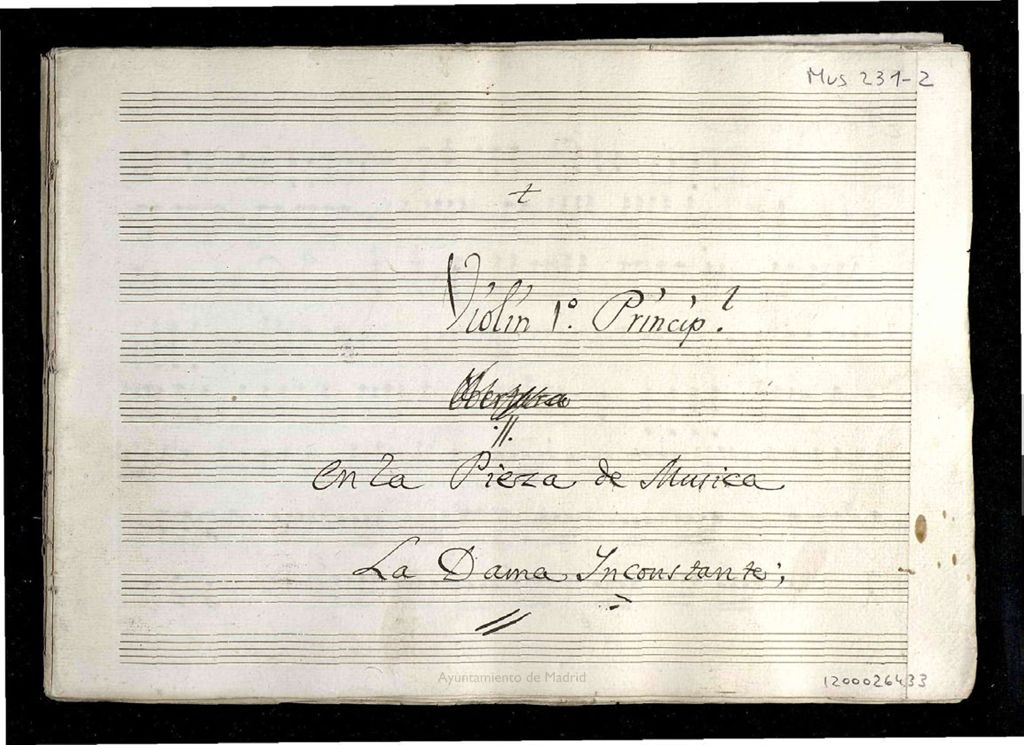 Mus 231-2
t
Violin 1º. Princip.l
Obertura
.//.
en La Pieza de Musica
La Dama Inconstante;
Ayuntamiento de Madrid
1200026433